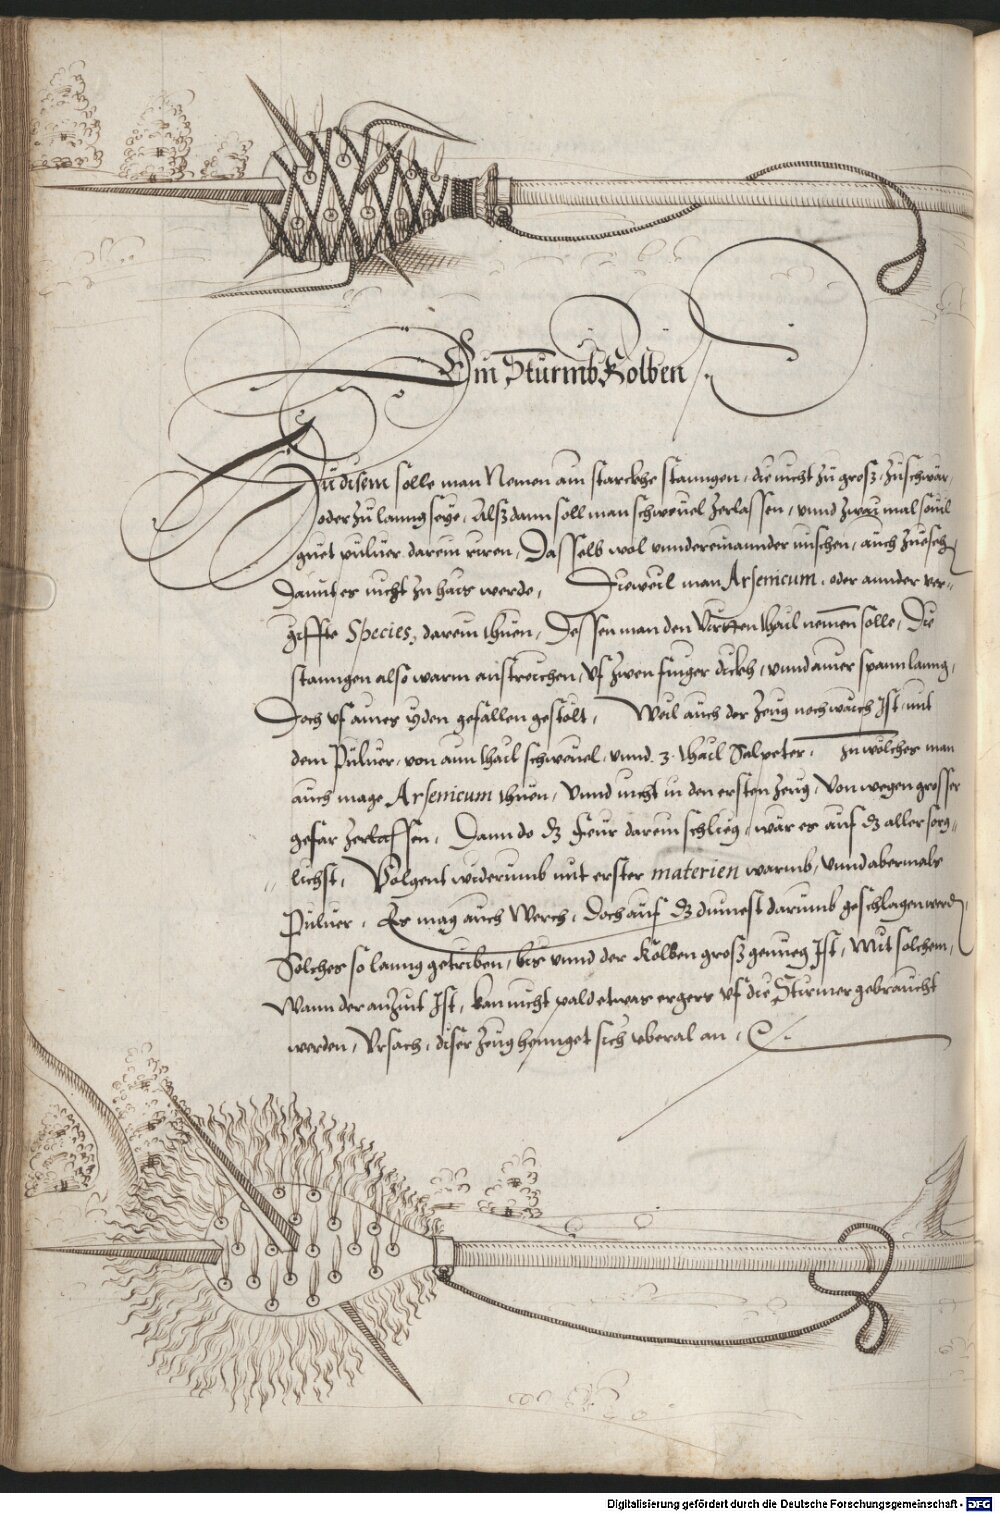 Ein Sturmb Kolben
Zu disem solle man Nemen ain starckhe stanngen, die nicht zu groß, zu schwär,
oder zu lanng seye, Alß dann soll man schweuel zerlassen, vnnd zway mal souil
guet puluer darein rüren, Das selb wol vnndereinannder mischen, auch zuesehen
Damit es nicht zu hais werde, Dieweil man Arsenicum, oder annder ver-
giffte Species, darein thuen, Dessen man den Viertten thail nemen solle, Die
stanngen also warm anstreichen, vf zwen finger dickh, vnnd ainer spann lanng,
Doch vf aines yden gefallen gestölt, Weil auch der zeug noch waich Ist, mit
dem Puluer, von ain thail schweuel, vnnd 3 thail Salpeter, zu wölches man
auch mage Arsenicum thuen, vnnd nicht in den ersten zeug, Von wegen grosser
gefar zerlassen, Dann do dz feur darein schlieg, wär es auf dz aller sorg-
lichst, Volgent widerumb mit erster materien warmb, vnnd abermals
Puluer, Es mag auch Werch, doch auf dz dinnest darumb geschlagen werden
Solches so lanng getriben, bis vnnd der Kolben groß genueg Ist, Mit solchem,
Wann der anzint Ist, kan nicht pald etwas ergers vf die Stürmer gebraucht
werden, Vrsach, diser zeug hennget sich vberal an,
Digitalisierung gefördert durch die Deutsche Forschungsgemeinschaft - DFG